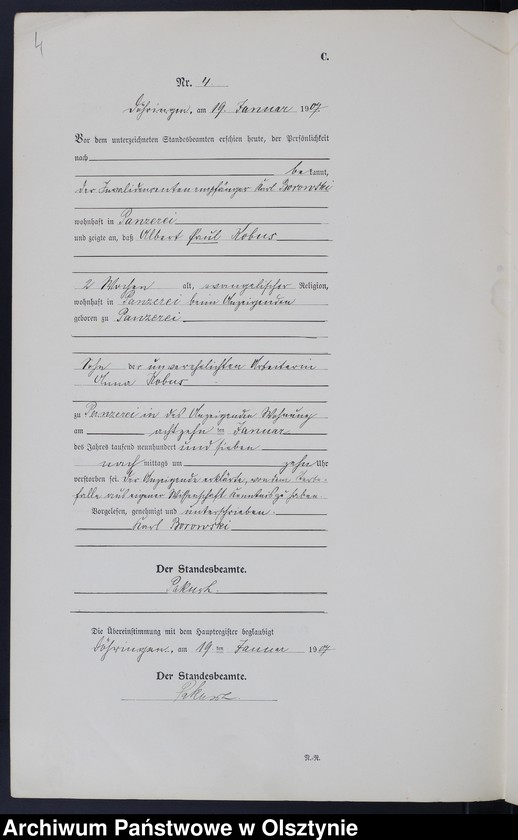 4
C.
Nr. 4
Döhringen, am 19. Januar 1907.
Vor dem unterzeichneten Standesbeamten erschien heute, der Persönlichkeit
nach
bekannt,
der Invalidenrentenempfänger Karl Borowski
wohnhaft in Panzerei
und zeigte an, daß Albert Paul Kobus
2 Wochen alt, evangelischer Religion,
wohnhaft in Panzerei beim Anzeigenden
geboren zu Panzerei
Sohn der unverehelichten Arbeiterin
Anna Kobus
zu Panzerei in des Anzeigenden Wohnung
am achtzehn ten Januar
des Jahres tausend neunhundert und sieben
nach mittags um zehn Uhr
verstorben sei. Der Anzeigende erklärte, von dem Sterb-
falle aus eigener Wissenschaft Kenntnis zu haben.
Vorgelesen, genehmigt und unterschrieben.
Karl Borowski
Der Standesbeamte.
Die Übereinstimmung mit dem Hauptregister beglaubigt
Döhringen, am 19 ten Januar 1907
Der Standesbeamte.
N.-R.
Archiwum Państwowe w Olsztynie